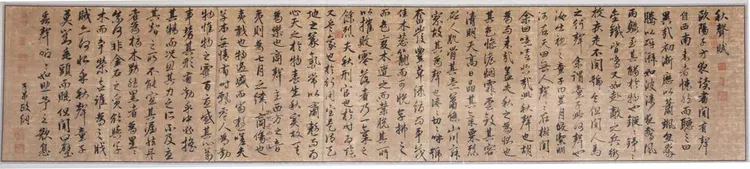 秋聲賦
歐陽子方夜讀書聞有聲
自西南來者悚然而聽之曰
異哉初淅瀝以蕭颯忽奔
騰以砰湃如波濤夜驚風
雨驟至其觸於物也鏦鏦錚錚
金鐵皆鳴又如赴敵之兵銜
枚疾走不聞號令但聞人馬
之行聲余謂童子此何聲也
汝出視之童子曰星月皎潔明
河在天四無人聲聲在樹間
余曰噫嘻悲哉此秋聲也胡
為而來哉蓋夫秋之為狀也
其色慘淡煙霏雲斂其容
清明天高日晶其氣慄冽
砭人肌骨其意蕭條山川寂
寥故其為聲也淒淒切切呼號
奮發豐草綠縟而爭茂
佳木蔥蘢而可悅草拂之
而色變木遭之而葉脫其所
以摧敗零落者乃一氣之
餘烈夫秋刑官也於時為陰
又兵象也於行為金是謂天
地之義氣常以肅殺而為
心天之於物春生秋實故其在
樂也商聲主西方之音
夷則為七月之律商傷也
夷戮也物過盛而當殺嗟夫
草木無情有時飄零人為動
物惟物之靈百憂感其心萬
事勞其形有動乎中必搖
其精而況思其力之所不及憂
其智之所不能宜其渥然丹
者為槁木黟然黑者為星星
奈何非金石之質欲與草
木而爭榮念誰為之戕
賊亦何恨乎秋聲童子
莫對垂頭而睡但聞四壁
蟲聲唧唧如助予之歎息